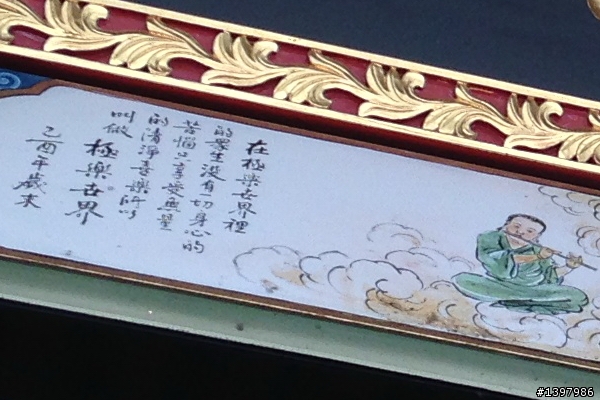 在極樂世界裡
的眾生沒有一切身心的
苦惱只享受無量
的清淨喜樂所以
叫做
極樂世界
乙酉年歲末
#1397986